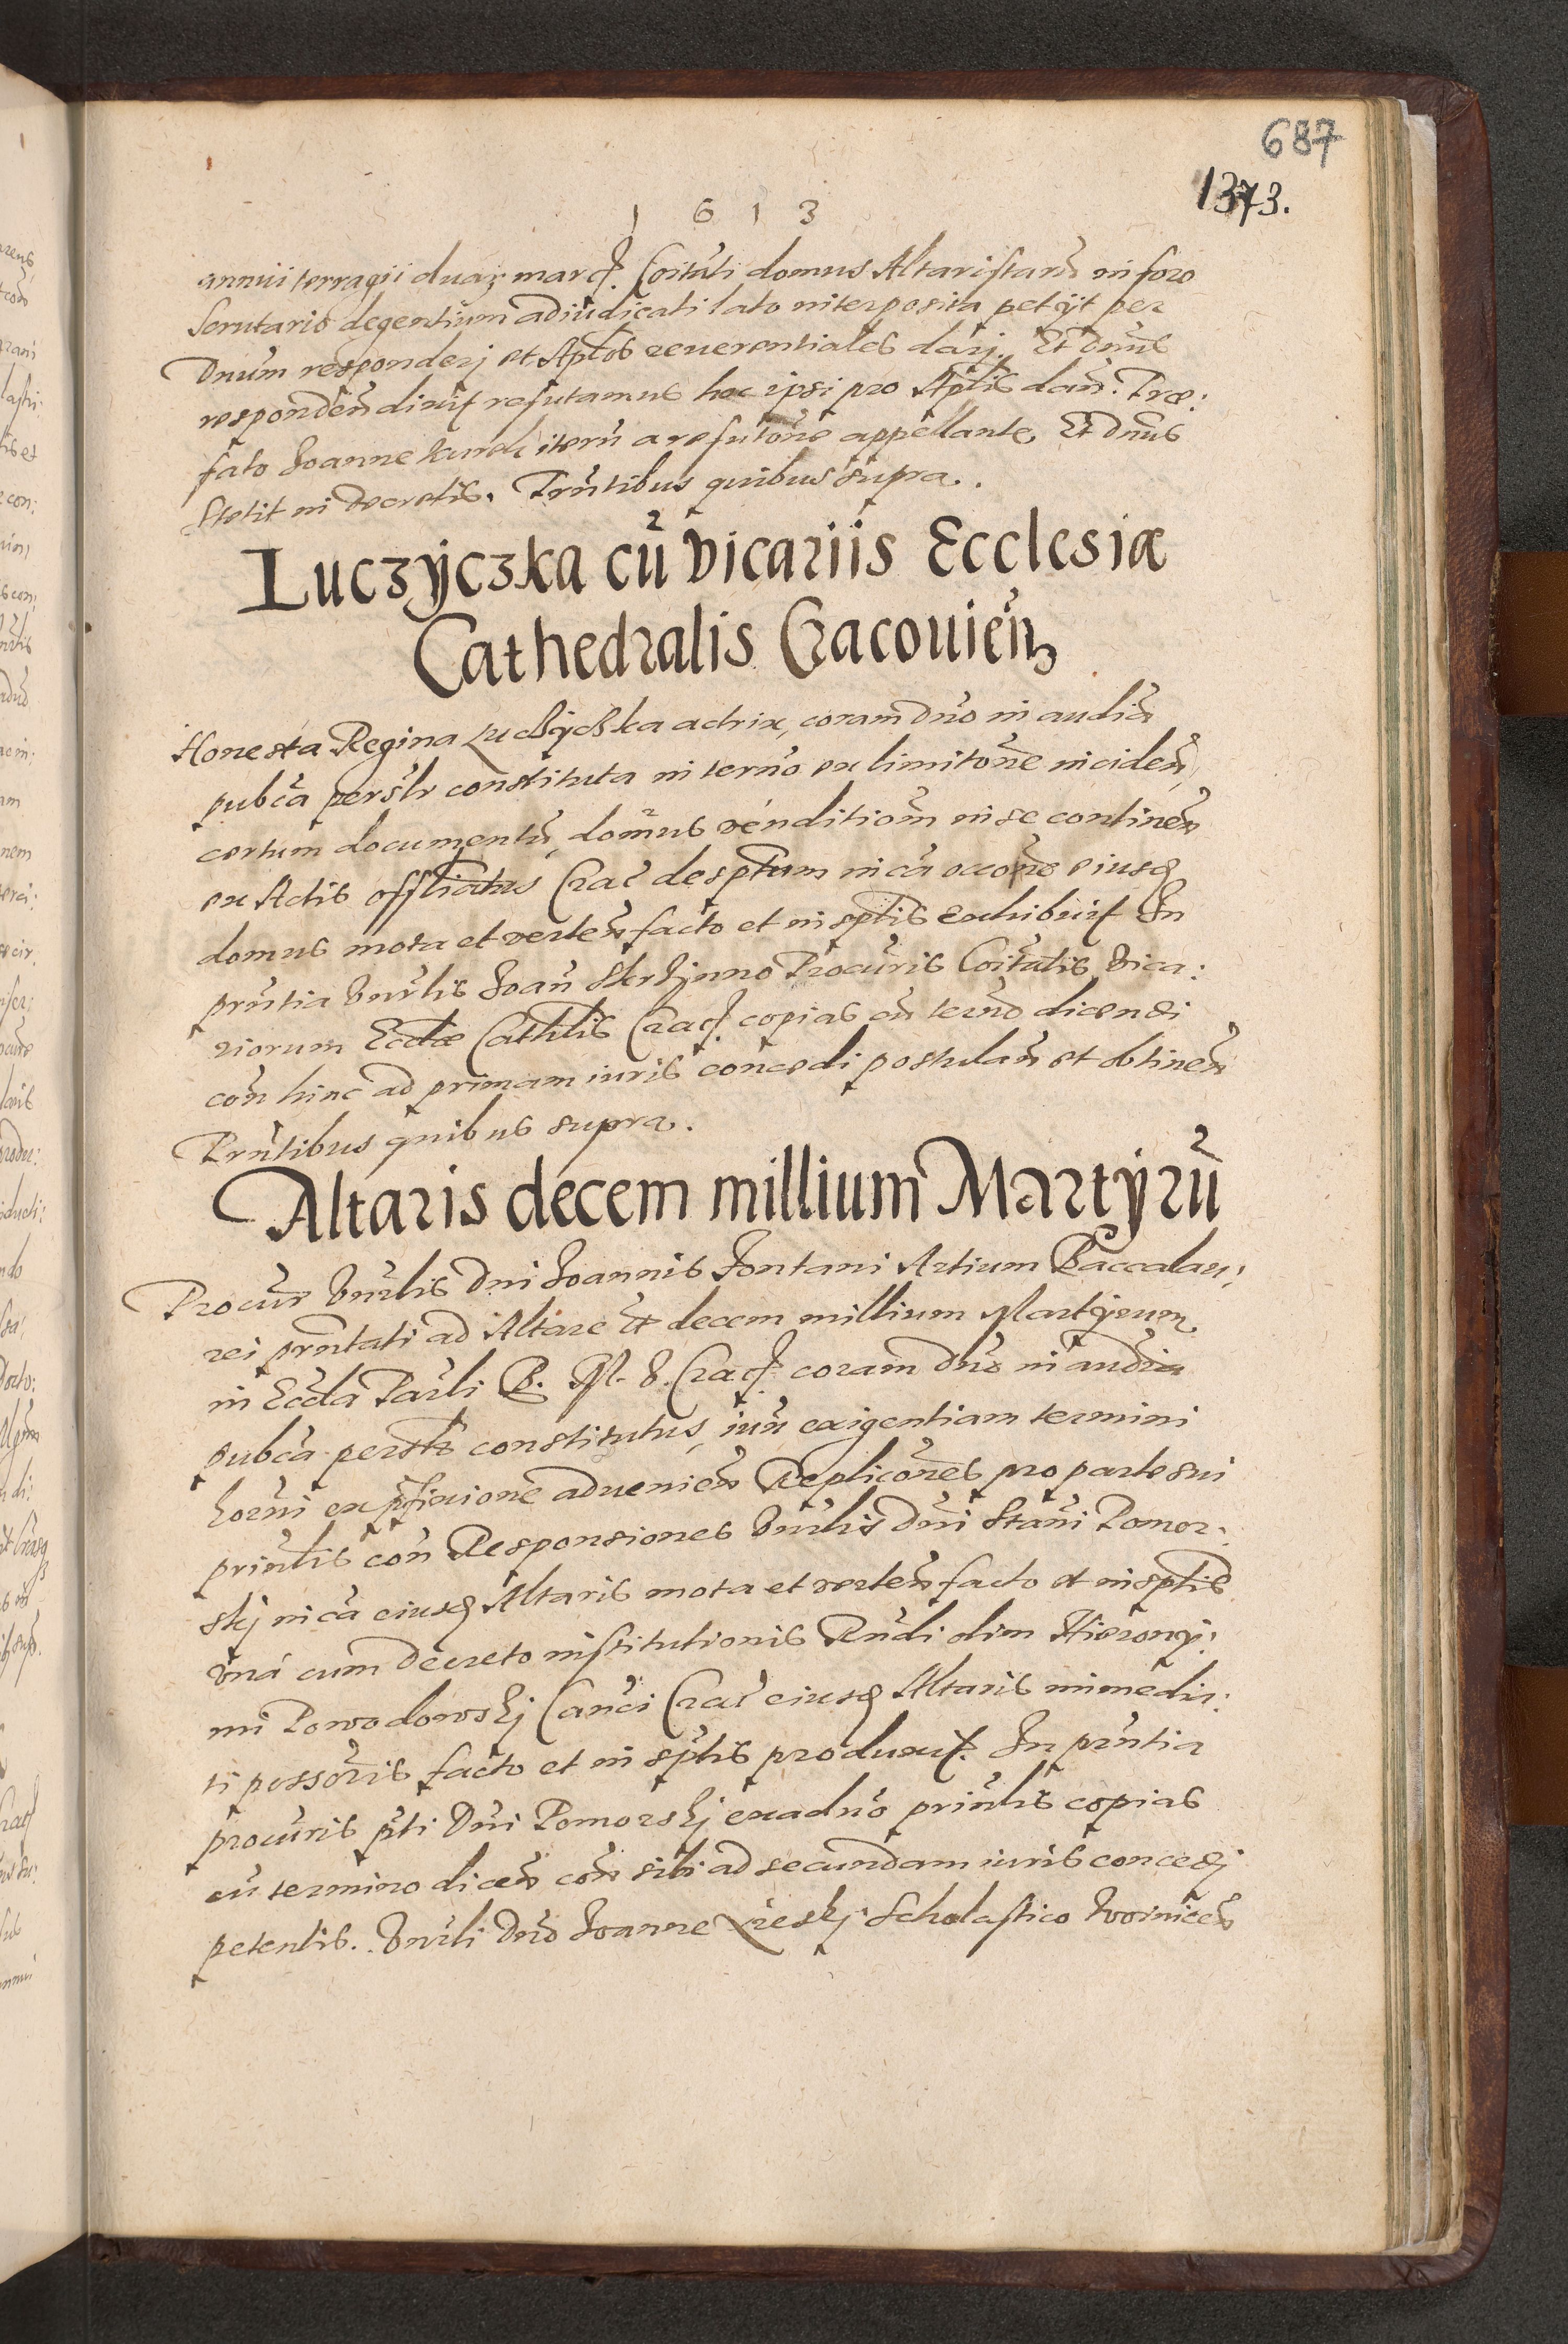 687
1373.
1 6 1 3
annui terragii duaɀ marcɟ. Coitati domus Altaristarū in foro
Scrutario degentium adiudicati lato interposita petÿt per
Dnum responderj et Aplos reuerentiales darj. Et Dnus
responden dixit refutamus hoc ipsi pro Aplis dan. Præ:
fato Joanne iterū a refutone appellante, Et Dnus
Stetit in decretis. Prntibus quibus supra.
Luczÿczka cū vicariis Ecclesiæ
Cathedralis Cracouien
Honesta Regina Luczÿczka actrix, coram Dno in audia
pubca persolr constituta in terno ex limitone inciden,
certum documentū, domus venditiom in se continen
ex Actis offliatus Crac desptum in ca occone eiusq
domus mota et verten facto et in sptis exhibuit In
prntia Vnrlis Joan Procuris Coitatis Vica:
riorum Ecclæ Cathlis Cracɟ. copias cū terno dicendi
con hinc ad primam iuris concedi postulan et obtinen
Prntibus quibus supra.
Altaris decem millium Martÿrū
Procur Vnrlis Dni Joannis Fontani Artium Baccalau:
rei prntati ad Altare St decem millium Martÿrum
in Eccla Parli B. M. V. Cracɟ. coram Dno in audia
pubca persolr constitutus, iux exigentiam termini
horni ex pfixione aduenien Replicones pro parte sui
prinlis con Responsiones Vnrlis Dni Stani Pomor:
skj in ca eiusq Altaris mota et verten facto et in sptis
vna cum decreto institutionis Rndi olim Hieronÿ:
mi Powodowskj Canci Crac eiusq Altaris immedia:
ti possoris facto et in sptis produxit. In prntia
procuris pti Dni Pomorskj ex aduo prinlis copias
cū termino dicen con sibi ad secundam iuris concedj
petentis. Vnrli Dno Joanne Scholastico